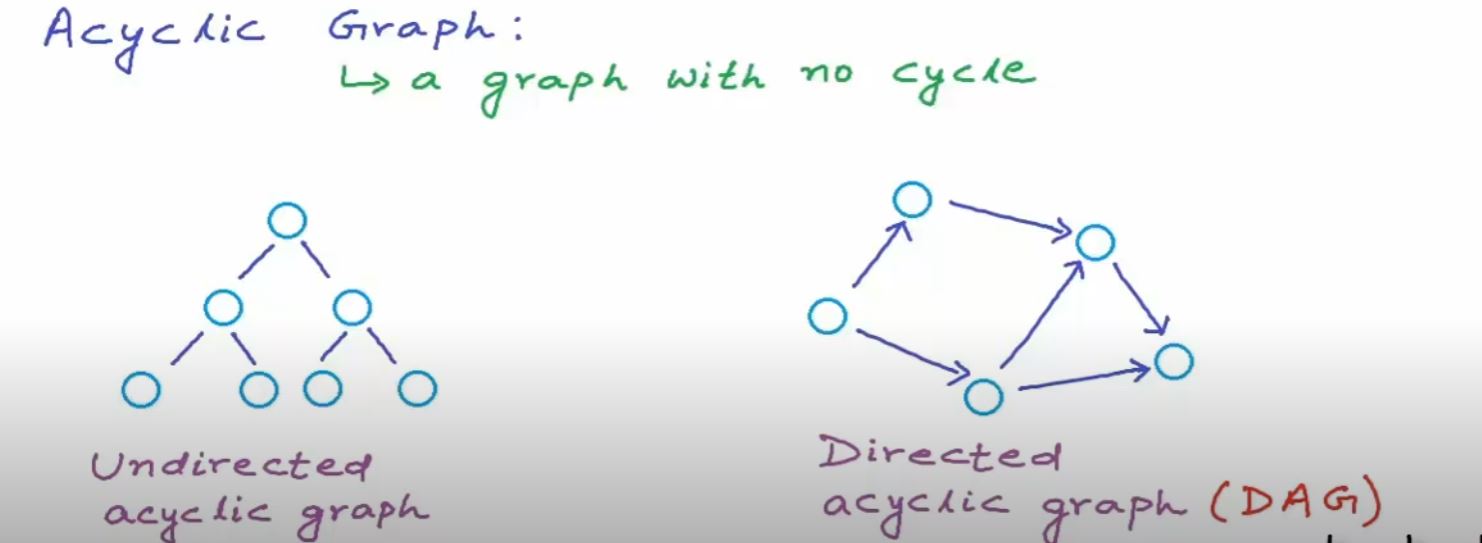 Acyclic Graph:
↳ a graph with no cycle
Undirected
acyclic graph
Directed
acyclic graph (DAG)